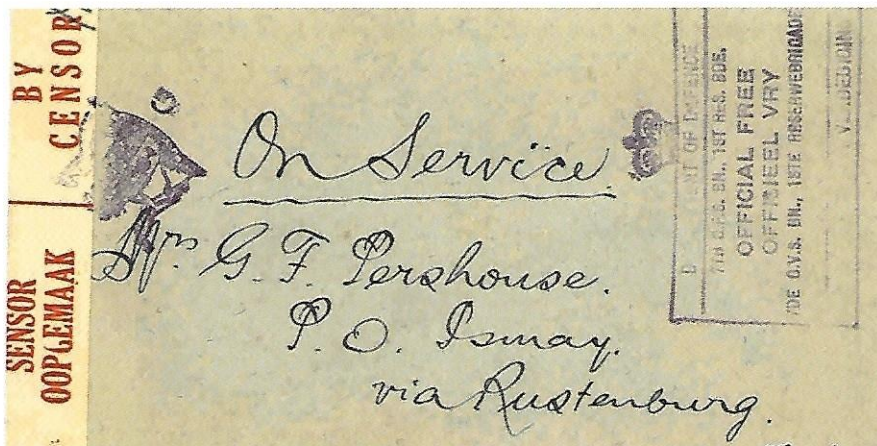 BY
CENSOR
SENSOR
OOPGEMAAK
On Service.
Mrs G. F. Pershouse.
P. O. Ismay.
via Rustenburg.
OF DEFENCE
7TH O.V.S. BN., 1ST RES. BDE.
OFFICIAL FREE
OFFISIEEL VRY
7DE O.V.S. BN., 1STE RESERWEBRIGADE